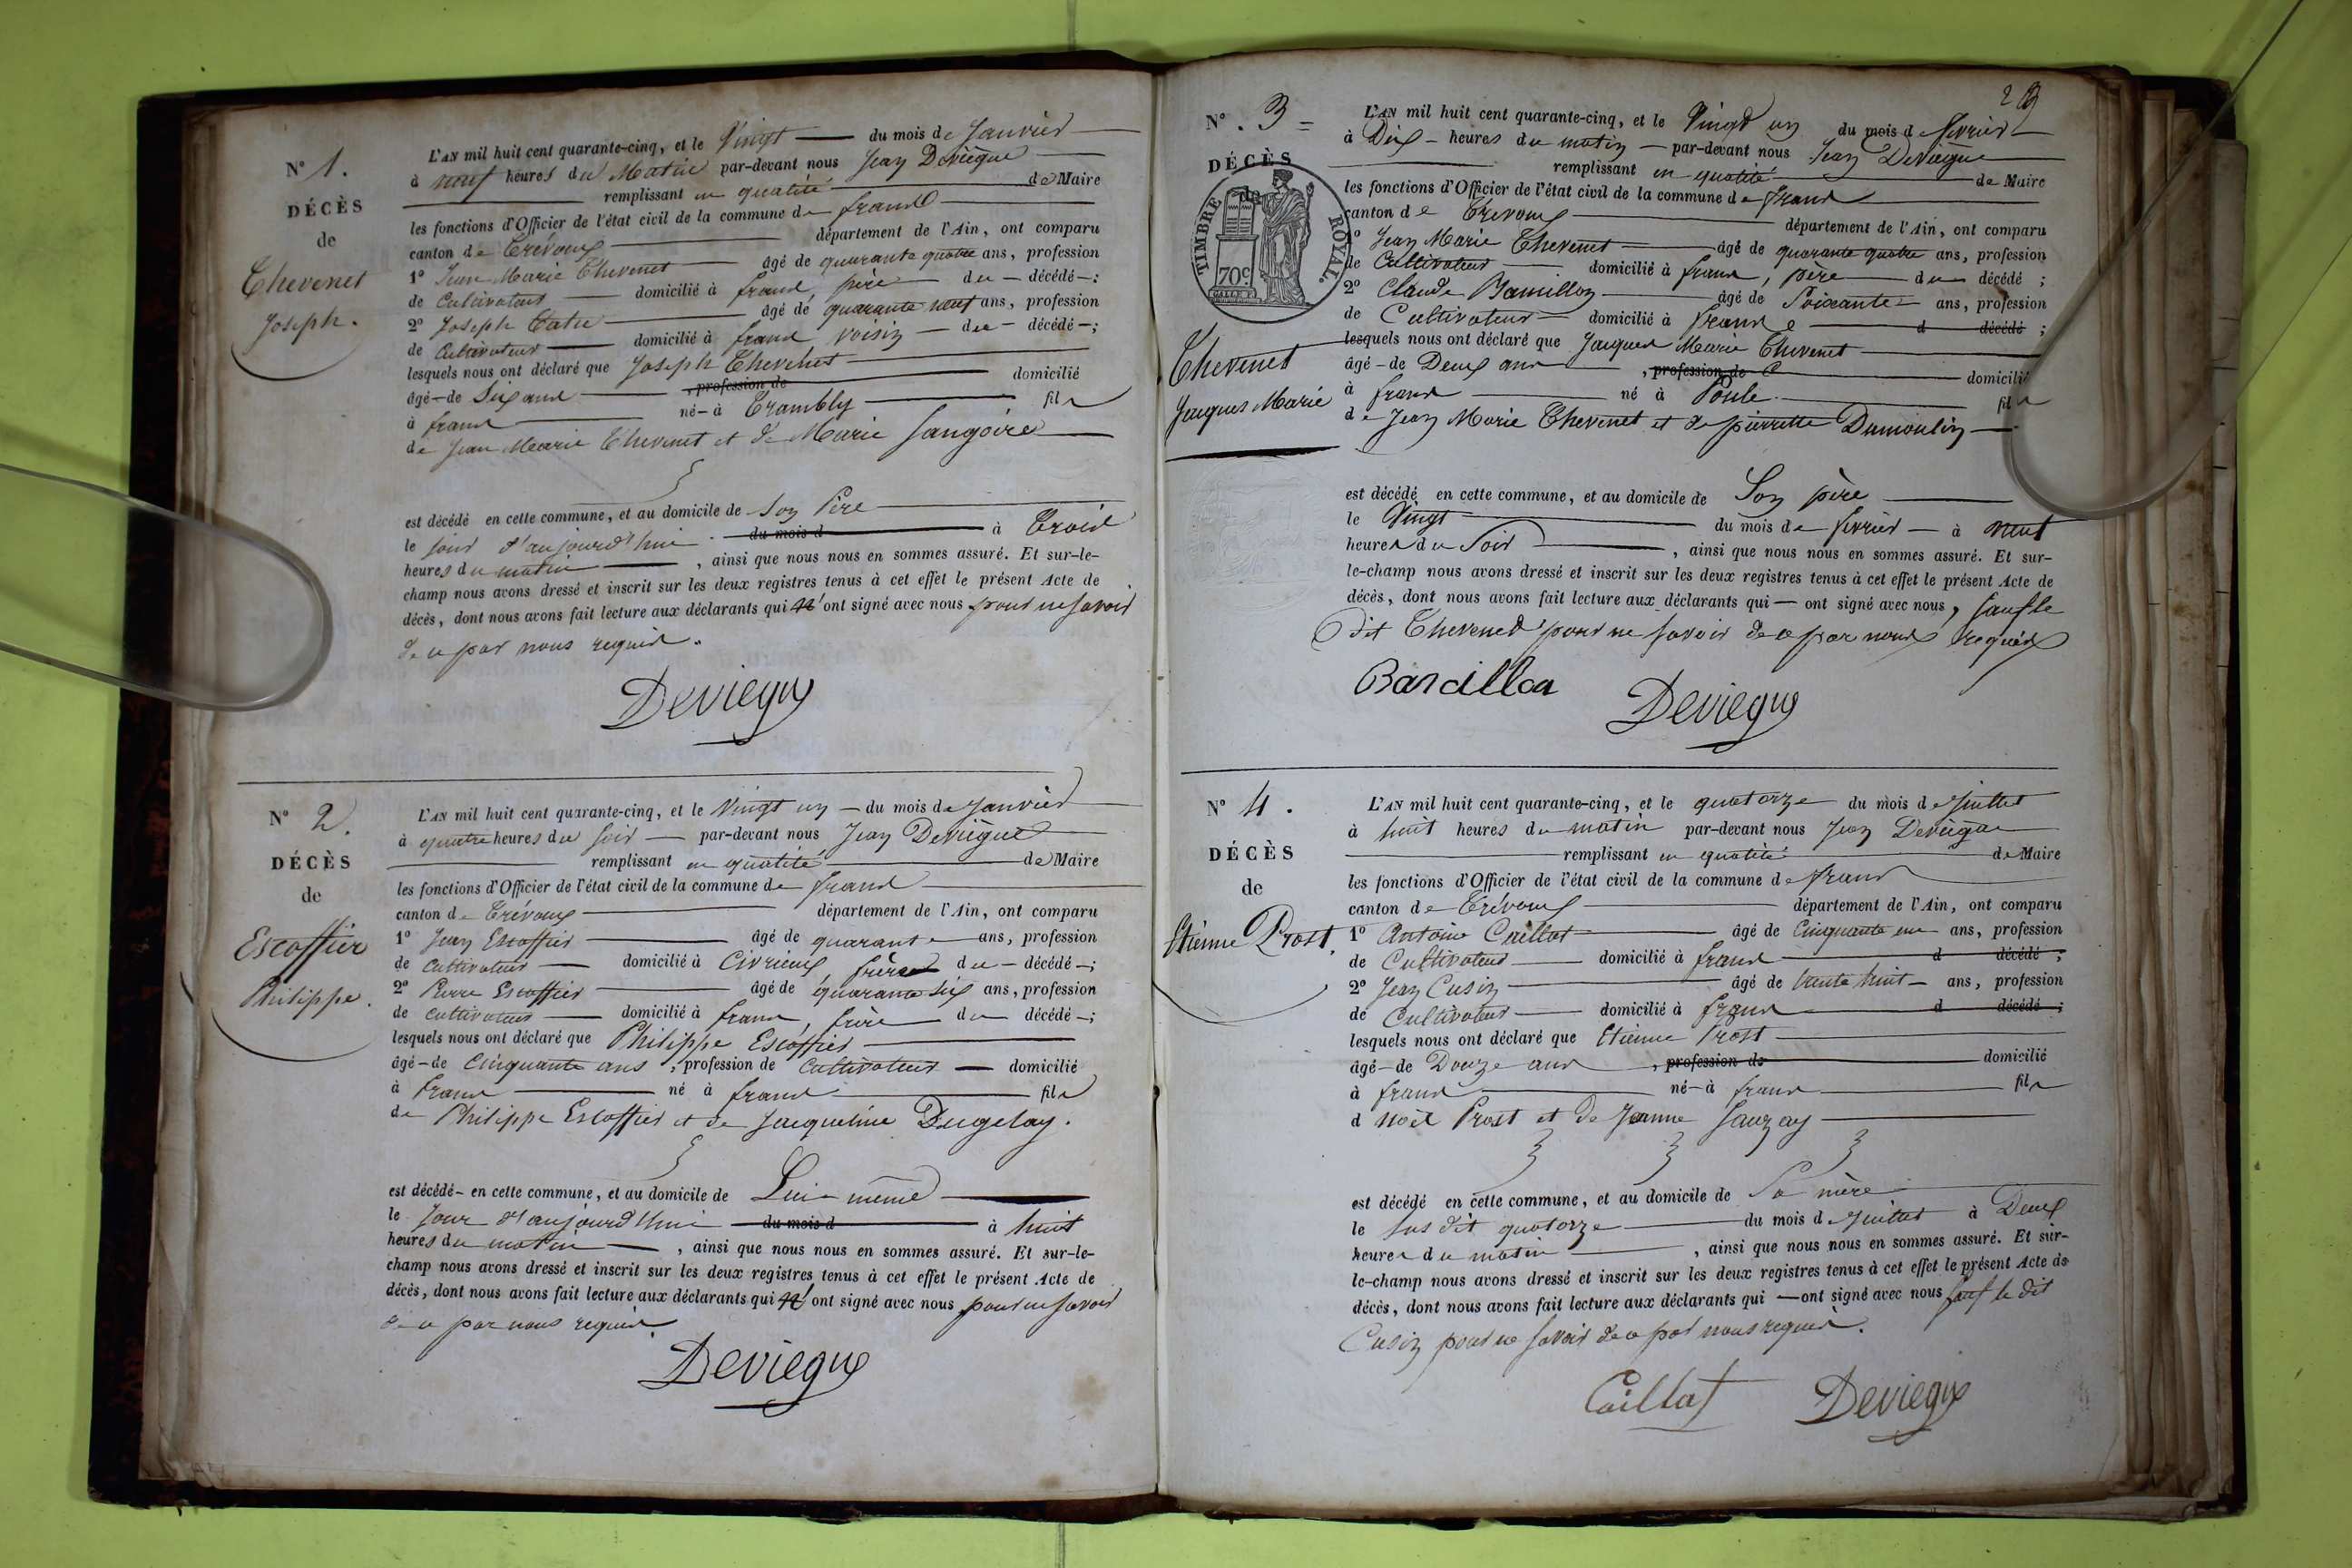 N° 1.
DÉCÈS
de
Thevenet
Joseph.
L'AN mil huit cent quarante-cinq, et le Vingt du mois de Janvier
à neuf heures du Matin par-devant nous Jean Deviègue
remplissant en qualité de Maire
les fonctions d'Officier de l'état civil de la commune de frans
canton de Trévoux département de l'Ain, ont comparu
1° Jean Marie Thevenet âgé de quarante quatre ans, profession
de Cultivateur domicilié à frans, père du décédé ;
2° Joseph âgé de quarante neuf ans, profession
de Cultivateur domicilié à frans voisin du décédé ;
lesquels nous ont déclaré que Joseph Thevenet
âgé de Six ans , profession de domicilié
à frans né à Trambly fils
de Jean Marie Thevenet et de Marie Sangoire
est décédé en cette commune, et au domicile de Son Père
le jour d'aujourd'hui du mois d à Trois
heures du matin , ainsi que nous nous en sommes assuré. Et sur-le-
champ nous avons dressé et inscrit sur les deux registres tenus à cet effet le présent Acte de
décès, dont nous avons fait lecture aux déclarants qui n' ont signé avec nous pour ne savoir
de ce par nous requis.
Deviegue
N° 2.
DÉCÈS
de
Escoffier
Philippe.
L'AN mil huit cent quarante-cinq, et le Vingt un du mois de Janvier
à quatre heures du soir par-devant nous Jean Deviègue
remplissant en qualité de Maire
les fonctions d'Officier de l'état civil de la commune de frans
canton de Trévoux département de l'Ain, ont comparu
1° Jean Escoffier âgé de quarante ans, profession
de cultivateur domicilié à Civrieux, frère du décédé ;
2° Pierre Escoffier âgé de quarante six ans, profession
de cultivateur domicilié à frans, frère du décédé ;
lesquels nous ont déclaré que Philippe Escoffier
âgé de Cinquante ans , profession de Cultivateur domicilié
à frans né à frans fils
de Philippe Escoffier et de Jacqueline Dugelay.
est décédé en cette commune, et au domicile de Lui même
le Jour d'aujourd'hui du mois d à huit
heures du matin , ainsi que nous nous en sommes assuré. Et sur-le-
champ nous avons dressé et inscrit sur les deux registres tenus à cet effet le présent Acte de
décès, dont nous avons fait lecture aux déclarants qui n' ont signé avec nous pour ne savoir
de ce par nous requis.
Deviegue
23
N° 3
DÉCÈS
de
TIMBRE ROYAL.
70c
Thevenet
Jacques Marie
L'AN mil huit cent quarante-cinq, et le Vingt un du mois de fevrier
à Dix heures du matin par-devant nous Jean Deviègue
remplissant en qualité de Maire
les fonctions d'Officier de l'état civil de la commune de frans
canton de Trévoux département de l'Ain, ont comparu
1° Jean Marie Thevenet âgé de quarante quatre ans, profession
de Cultivateur domicilié à frans, père du décédé ;
2° Claude âgé de Soixante ans, profession
de Cultivateur domicilié à frans d décédé ;
lesquels nous ont déclaré que Jacques Marie Thevenet
âgé de Deux ans , profession de domicilié
à frans né à Poule fils
de Jean Marie Thevenet et de pierrette Dumoulin
est décédé en cette commune, et au domicile de Son père
le Vingt du mois de fevrier à neuf
heures du Soir , ainsi que nous nous en sommes assuré. Et sur-
le-champ nous avons dressé et inscrit sur les deux registres tenus à cet effet le présent Acte de
décès, dont nous avons fait lecture aux déclarants qui ont signé avec nous, sauf le
dit Thevenet pour ne savoir de ce par nous requis
Deviegue
N° 4.
DÉCÈS
de
Etienne Prost.
L'AN mil huit cent quarante-cinq, et le quatorze du mois de Juillet
à huit heures du matin par-devant nous Jean Deviègue
remplissant en qualité de Maire
les fonctions d'Officier de l'état civil de la commune de frans
canton de Trévoux département de l'Ain, ont comparu
1° Antoine Caillat âgé de Cinquante ans, profession
de Cultivateur domicilié à frans d décédé ;
2° Jean Cusin âgé de trente huit ans, profession
de Cultivateur domicilié à frans d décédé ;
lesquels nous ont déclaré que Etienne Prost
âgé de Douze ans , profession de domicilié
à frans né à frans fils
d Noël Prost et de Jeanne Sauzay
est décédé en cette commune, et au domicile de Sa mère
le sus dit quatorze du mois de Juillet à Deux
heures du matin , ainsi que nous nous en sommes assuré. Et sur-
le-champ nous avons dressé et inscrit sur les deux registres tenus à cet effet le présent Acte de
décès, dont nous avons fait lecture aux déclarants qui ont signé avec nous sauf le dit
Cusin pour ne savoir de ce par nous requis.
Caillat Deviegue